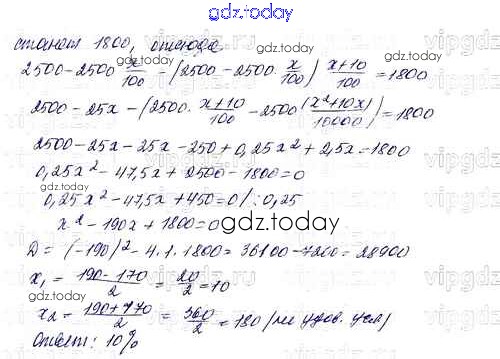 gdz.today
станет 1800, отсюда
gdz.today
2500-2500 x/100 - (2500-2500· x/100) x+10/100 = 1800
2500-25x-(2500· x+10/100 - 2500(x²+10x/10000)) = 1800
2500-25x-25x-250+0,25x²+2,5x=1800
0,25x²-47,5x+2500-1800=0
0,25x²-47,5x+450=0/:0,25
x²-190x+1800=0
gdz.today
D=(-190)²-4·1·1800=36100-7200=28900
x₁= 190-170/2 = 20/2 =10
x₂= 190+170/2 = 360/2 =180 (не удов. усл)
Ответ: 10%
gdz.today